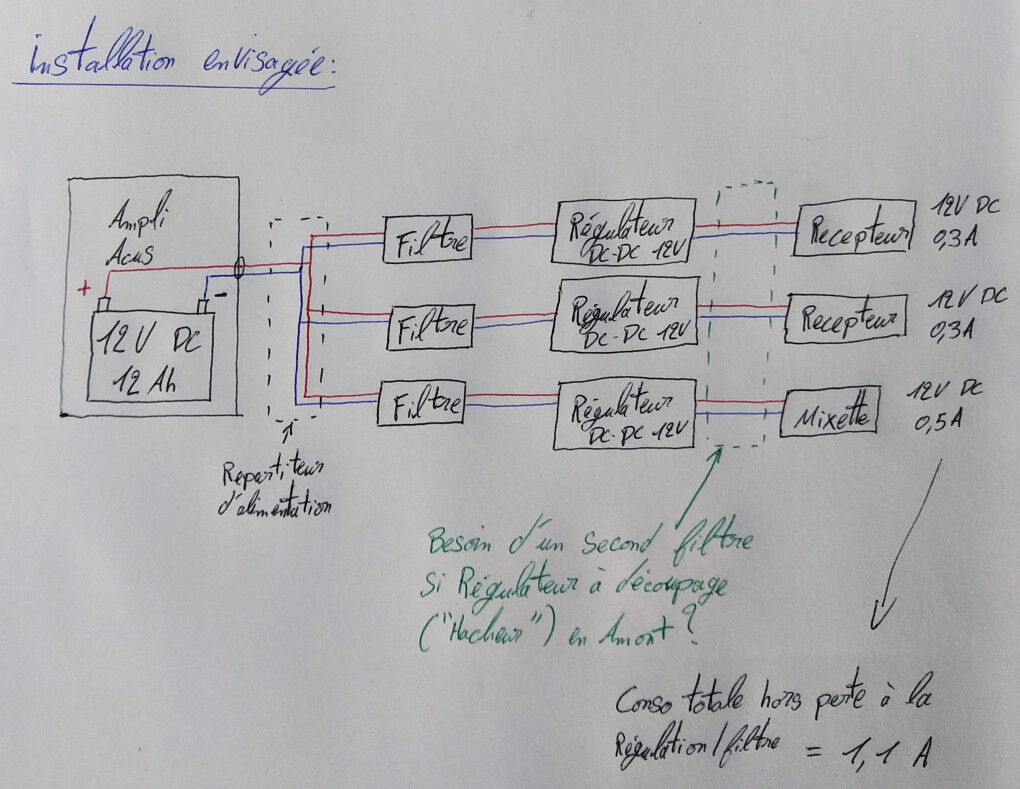 installation envisagée:
Ampli
Acus
+
-
12V DC
12 Ah
Repartiteur
d'alimentation
Filtre
Régulateur
DC-DC 12V
Recepteur
12V DC
0,3A
Filtre
Régulateur
DC-DC 12V
Recepteur
12V DC
0,3A
Filtre
Régulateur
DC-DC 12V
Mixette
12V DC
0,5A
Besoin d'un second filtre
si Régulateur à découpage
("Hacheur") en Amont?
Conso totale hors perte à la
Régulation/filtre = 1,1 A